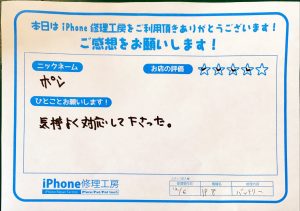 本日は iPhone 修理工房をご利用頂きありがとうございます!
ご感想をお願いします!
ニックネーム
お店の評価
ポン
ひとことお願いします!
気持よく対応して下さった。
iPhone修理工房
バッテリー